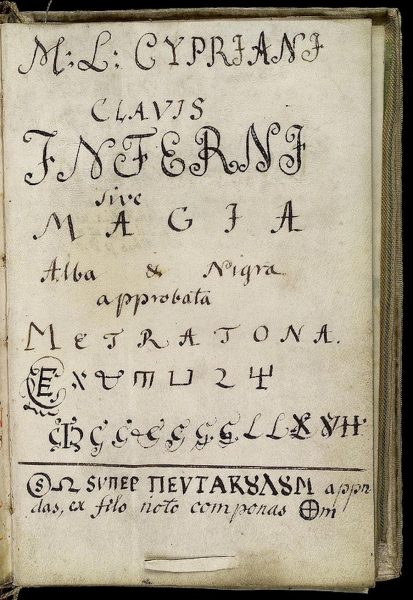 M: L: CYPRIANI
CLAVIS
INFERNI
sive
MAGIA
Alba & Nigra
approbata
METRATONA.
Ω SVΠEP ΠEVTAKȣΛȣM appn
das, ex filo noto componas ⊕m